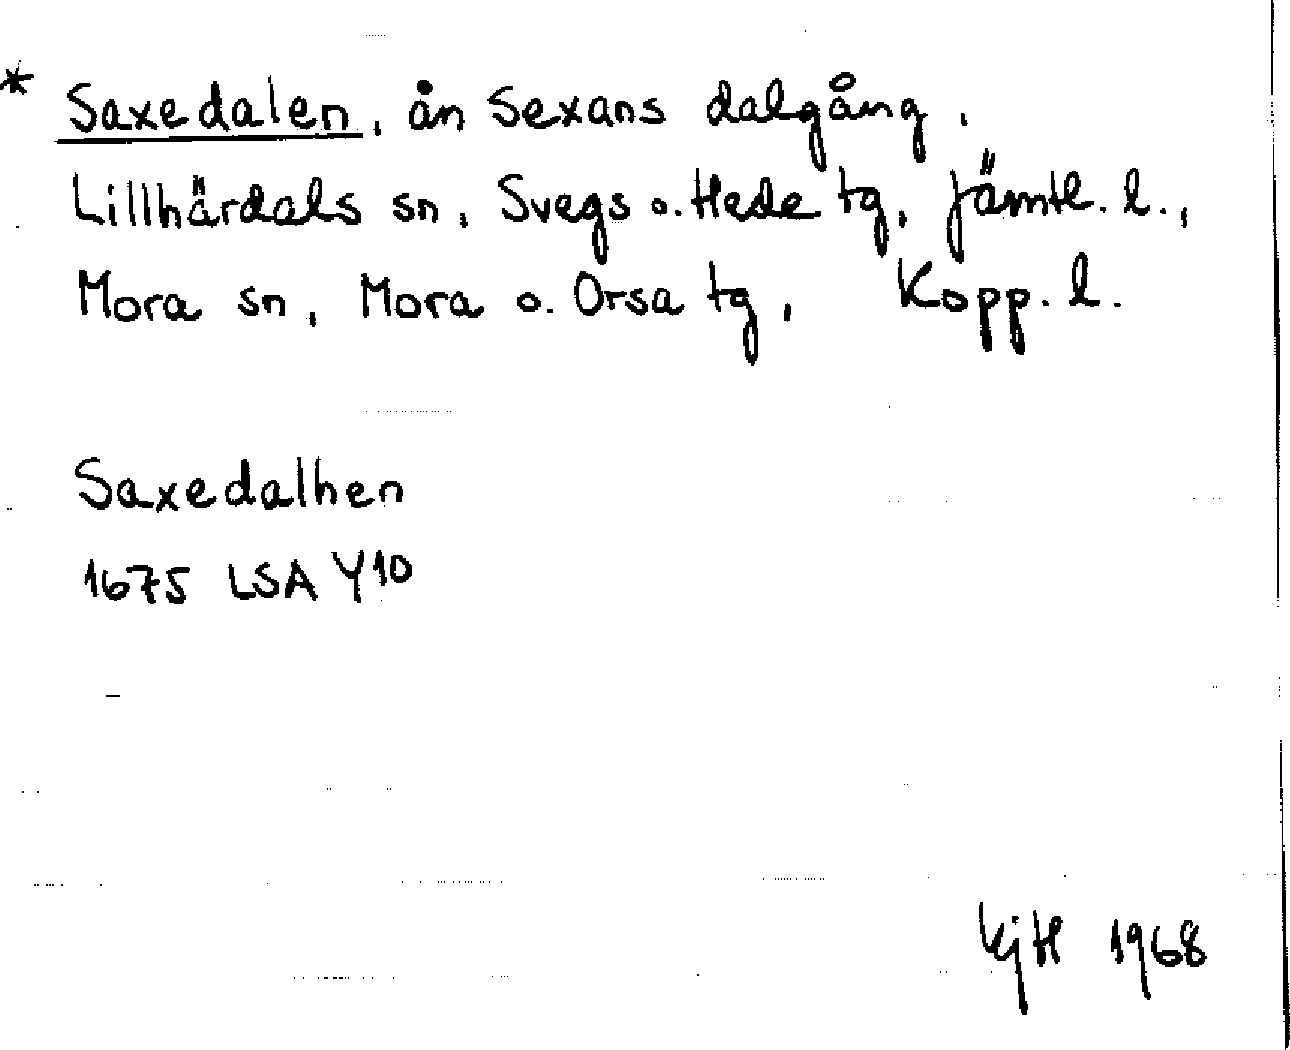 * Saxedalen, ån Sexans dalgång,
Lillhärdals sn, Svegs o. Hede tg, Jämtl. l.,
Mora sn, Mora o. Orsa tg, Kopp. l.
Saxedalhen
1675 LSA Y10
KjH 1968